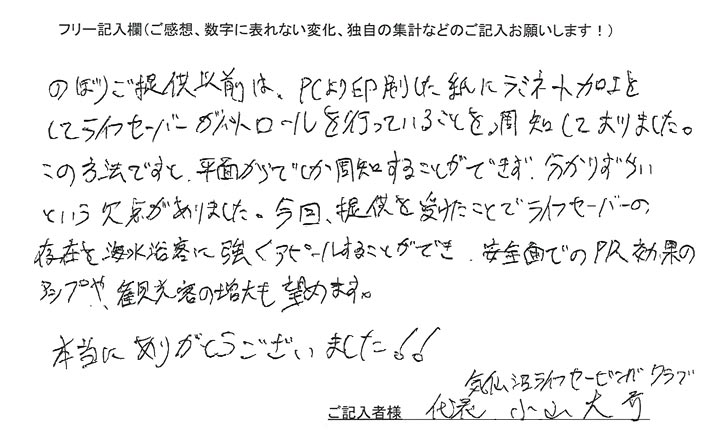 フリー記入欄（ご感想、数字に表れない変化、独自の集計などのご記入お願いします！）
のぼりご提供以前は、PCより印刷した紙にラミネート加工を
してライフセーバーがパトロールを行っていることを周知しておりました。
この方法ですと、平面からでしか周知することができず、分かりずらい
という欠点がありました。今回、提供を受けたことでライフセーバーの
存在を海水浴客に強くアピールすることができ、安全面でのPR効果の
アップや、観光客の増大も望めます。
本当にありがとうございました!!
気仙沼ライフセービングクラブ
ご記入者様 代表 小山大